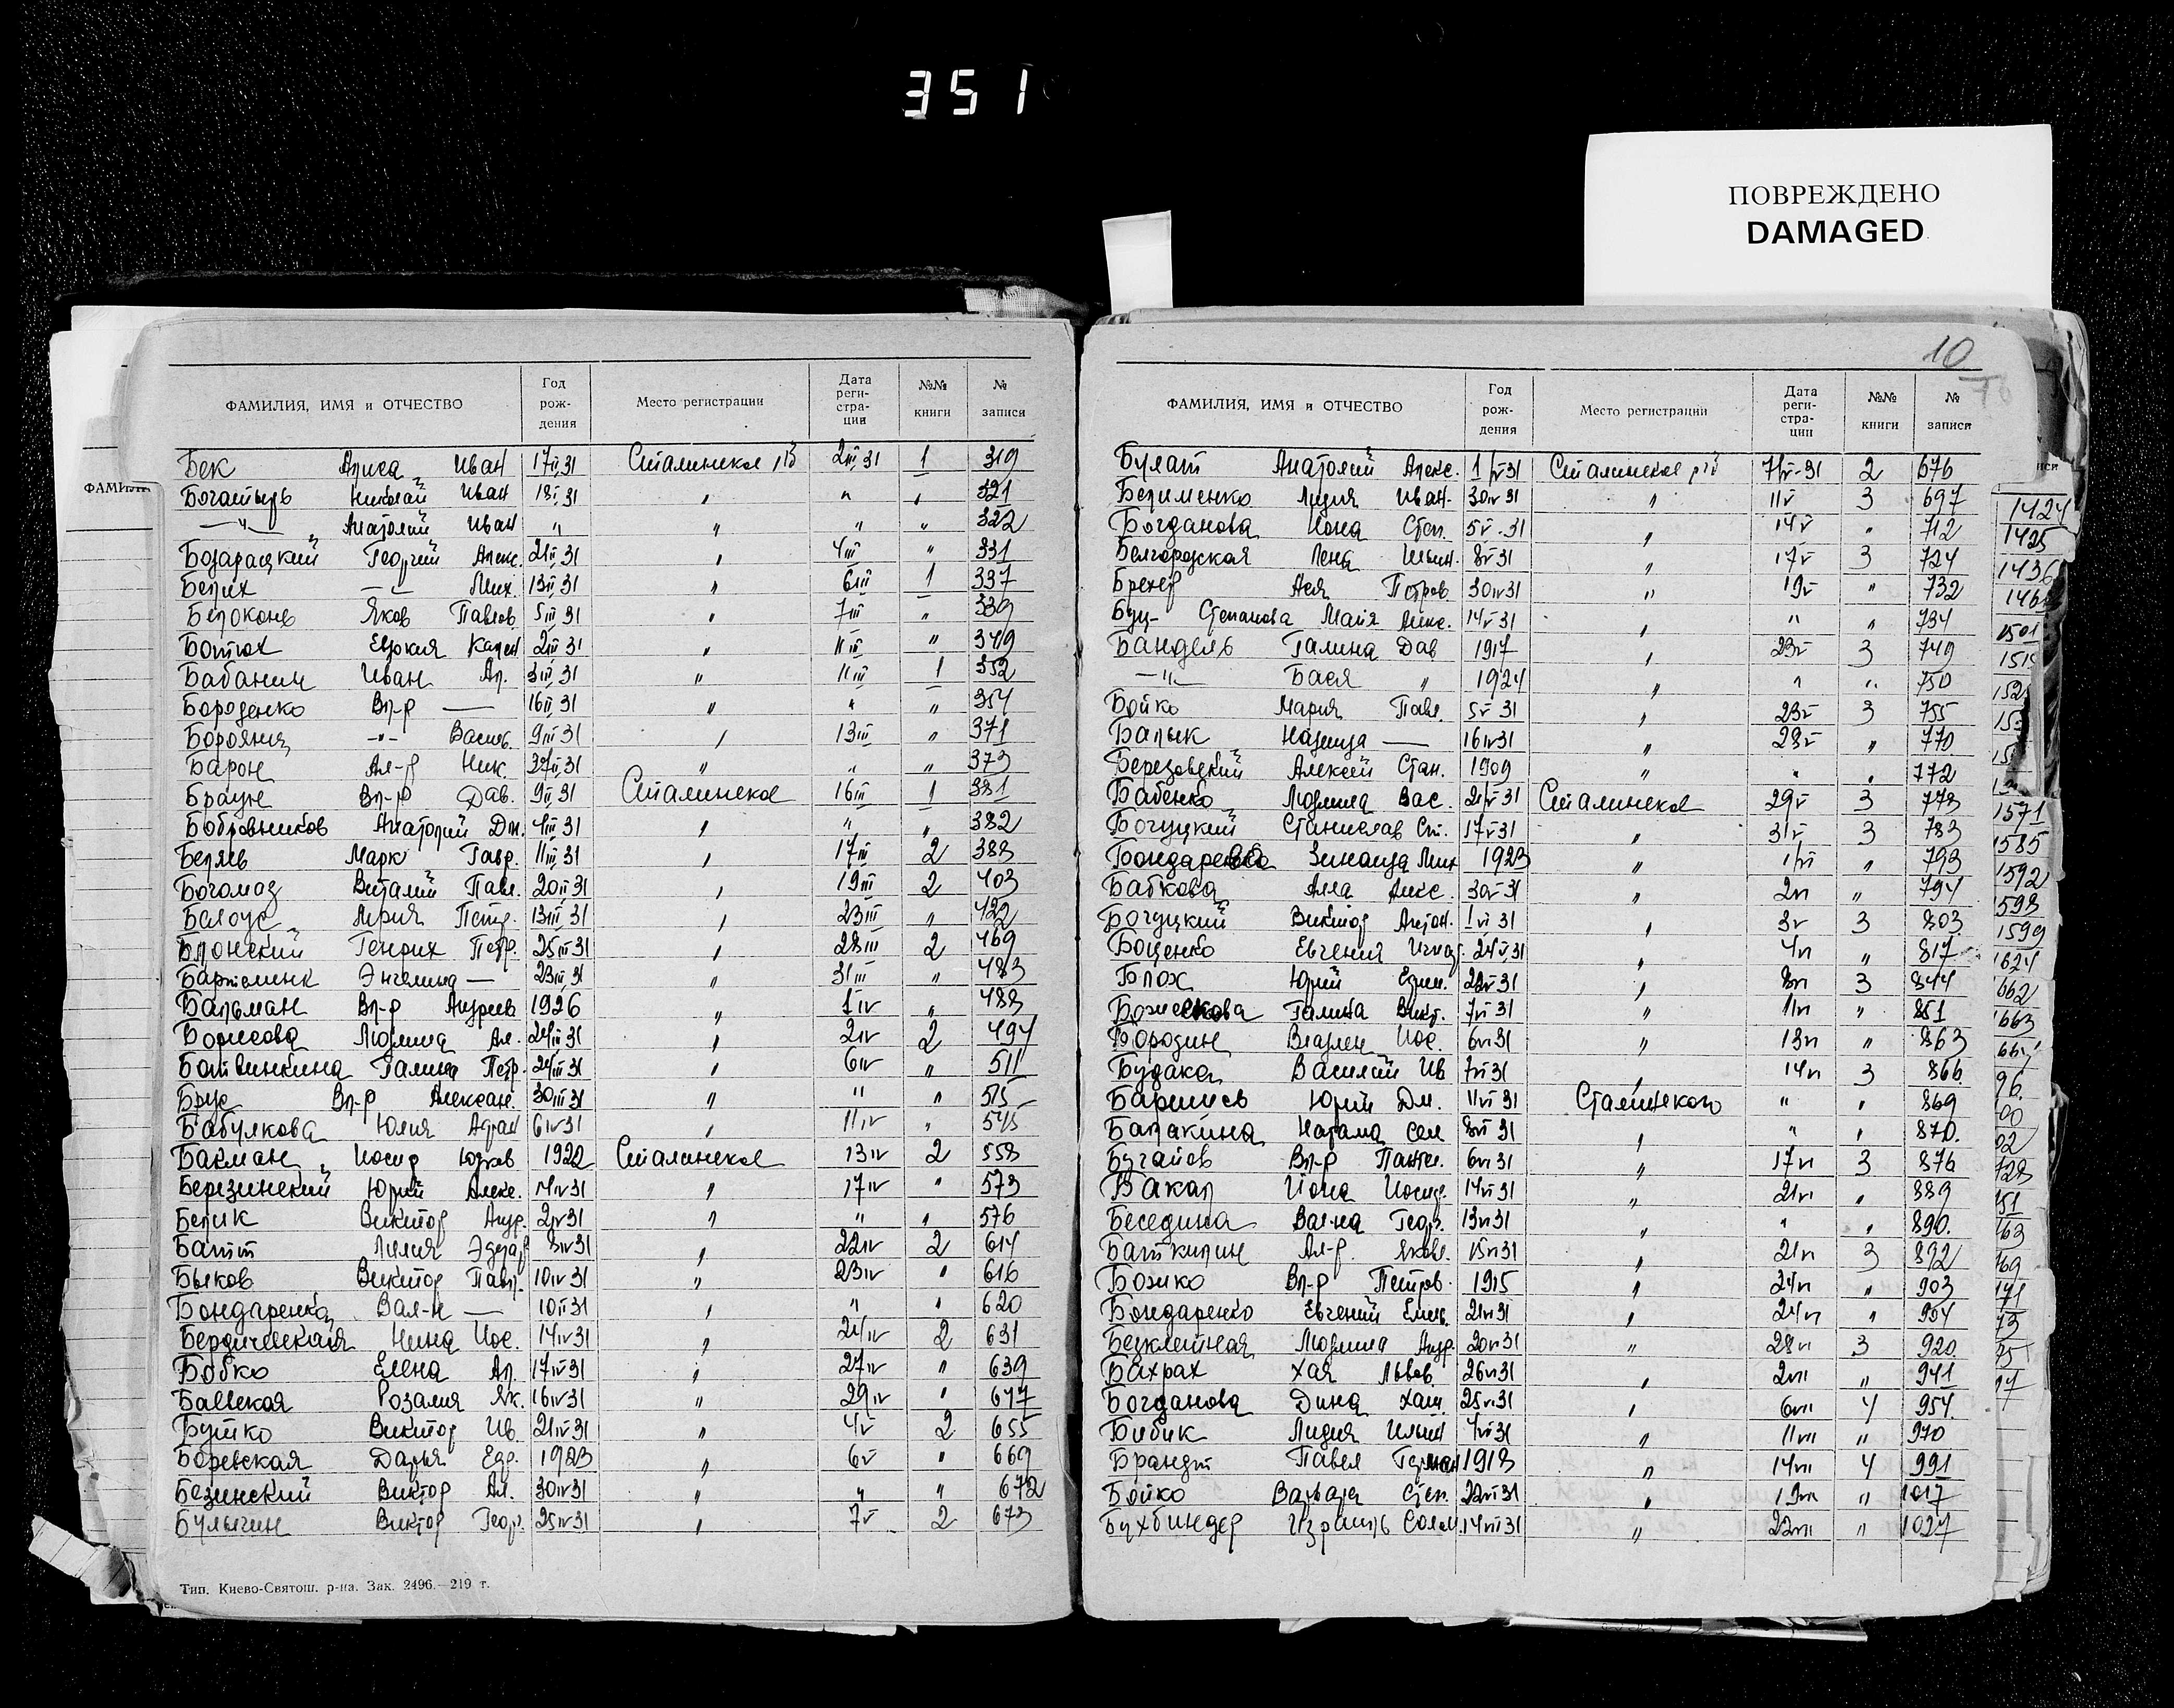 351
ПОВРЕЖДЕНО
DAMAGED
10
ФАМИЛИЯ, ИМЯ и ОТЧЕСТВО Год рождения Место регистрации Дата регистрации №№ книги № записи
Бек Алиса Иван 17II31 Сталинское 2III31 1 319
Богатырь Николай Иван 18I31 " " " 321
—"— Анатолий Иван " " " " 322
Георгий Алекс. 21II31 " 4III " 331
Белих —"— Мих. 13II31 " 6III 1 337
Белоконь Яков Павлов 5III31 " 7III " 339
Ботюх 2III31 " 11III " 349
Бабанин Иван Ал. 3III31 " 11III 1 352
Бороденко Вл-р — 16II31 " " " 354
—"— Васил. 9III31 " 13III " 371
Барон Ал-р Ник. 27II31 " " " 373
Браун Вл-р Дав. 9II31 Сталинское 16III 1 381
Бобровников Анатолий Дм. 4III31 " " " 382
Беляев Марк Гавр. 11III31 " 17III 2 388
Богомаз Виталий Павл. 20II31 " 19III 2 403
Белоус Петр. 13III31 " 23III " 422
Блонский Генрих Петр. 25III31 " 28III 2 469
23III31 " 31III " 483
Бальман Вл-р Андреев 1926 " 1IV " 488
Борисова Людмила Ал. 24III31 " 2IV 2 494
Ботвинкина Галина Петр. 24III31 " 6IV " 511
Брус Вл-р Алексан. 30III31 " " " 515
Бабулкова Юлия 6IV31 " 11IV " 545
Бакман Иосиф 1922 Сталинское 13IV 2 558
Березинский Юрий Алекс. 14IV31 " 17IV " 573
Белик Виктор Андр. 2IV31 " " " 576
Батт Лилия Эдуар 8IV31 " 22IV 2 614
Быков Виктор Павл. 10IV31 " 23IV " 616
Бондаренко Вал-н — 10II31 " " " 620
Бердичевская Нина Иос. 14IV31 " 24IV 2 631
Бобко Елена Ал. 17IV31 " 27IV " 639
Розалия Як. 16IV31 " 29IV " 647
Бутко Виктор Ив. 21IV31 " 4V 2 655
Боревская Дарья 1923 " 6V " 669
Безинский Виктор Ал. 30IV31 " " " 672
Булыгин Виктор Георг. 25IV31 " 7V 2 673
Тип. Киево-Святош. р-на. Зак. 2496.—219 т.
ФАМИЛИЯ, ИМЯ и ОТЧЕСТВО Год рождения Место регистрации Дата регистрации №№ книги № записи
Булат Анатолий Алекс. Сталинское 2 676
Лидия Иван. 30IV31 " 11V 3 697
Богданова Нона Степ. 5V.31 " 14V " 712
Белгородская Лена 8V31 " 17V 3 724
Брехер Ася Петров 30IV31 " 19V " 732
Буц- Степанова Майя Алекс. 14V31 " " " 734
Бандель Галина Дав 1917 " 23V 3 749
—"— Бася " 1924 " " " 750
Бойко Мария Павл. 5V31 " 23V 3 755
Балык Надежда — 16IV31 " 28V " 770
Березовский Алексей Стан. 1909 " " " 772
Бабенко Людмила Вас. Сталинское 29V 3 773
Богуцкий Станислав Ст. 17V31 " 31V 3 783
Зинаида Мих 1923 " 1VI " 793
Бабкова Алла Алекс. 30V31 " 2VI " 794
Богуцкий Виктор Антон. 1VI31 " 3V 3 803
Боценко Евгения 24V31 " 4VI " 817
Блох Юрий " 8VI 3 844
Галина Викт. 7VI31 " 11VI " 851
Бородин Владлен Иос. 6VI31 " 13VI " 863
Будакол Василий Ив 7VI31 " 14VI 3 866
Юрий Дм. 11VI31 Сталинского " " 869
Балакина Натама Сем 8VI31 " " " 870.
Бугайов Вл-р Пантел. 6VI31 " 17VI 3 876
Бакал Нона Иосиф. 14VI31 " 21VI " 889
Беседина Вал-на Георг. 13VI31 " " " 890.
Баткилин Ал-р. Яковл. 15VI31 " 21VI 3 892
Божко Вл-р Петров. 1915 " 24VI " 903
Бондаренко Евгений Емел. 21VI31 " 24VI " 904
Безклейная Людмила Андр. 20VI31 " 28VI 3 920.
Бахрах Хая Львов. 26VI31 " 2VII " 941
Богданова Дина Хаим. 25VI31 " 6VII 4 954.
Бибик Лидия Ильин 4VII31 " 11VII " 970
Брандт Павел Герман 1918 " 14VII 4 991
Бойко Варвара Степ. 22VI31 " " 1017
Бухбиндер Израиль Солом. 14VII31 " 22VII " 1027
1424
1425
1436
1501
1571
1585
1592
1599